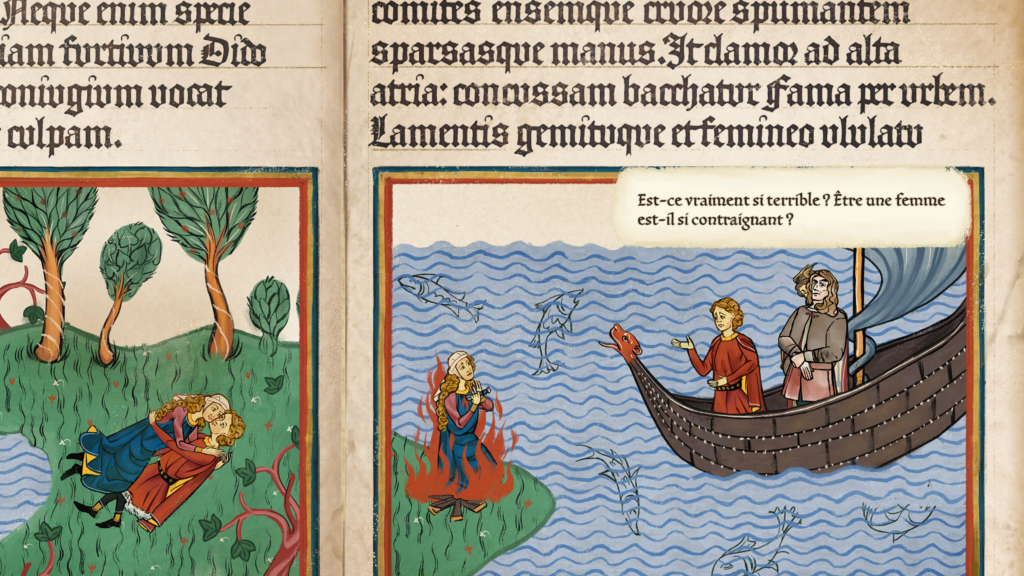 Neqve enim specie
iam fvrtivvm Dido
onivgivm vocat
cvlpam.
comites ensemqve crvore spvmantem
sparsasqve manvs. It clamor ad alta
atria: concvssam bacchatvr Fama per vrbem.
Lamentis gemitvqve et femineo vlvlatv
Est-ce vraiment si terrible ? Être une femme
est-il si contraignant ?